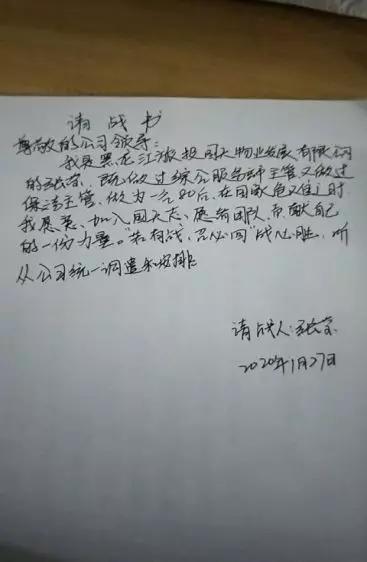 请战书
尊敬的公司领导：
我是黑龙江 物业发展有限公司
的张蕾，既做过综合服务部主管又做过
保洁主管，做为一个80后，在国家危难之时
我愿意，加入 团队，贡献自己
的一份力量。“若有战，召必回”战必胜，听
从公司统一调遣和安排
请战人：张
2020年1月27日